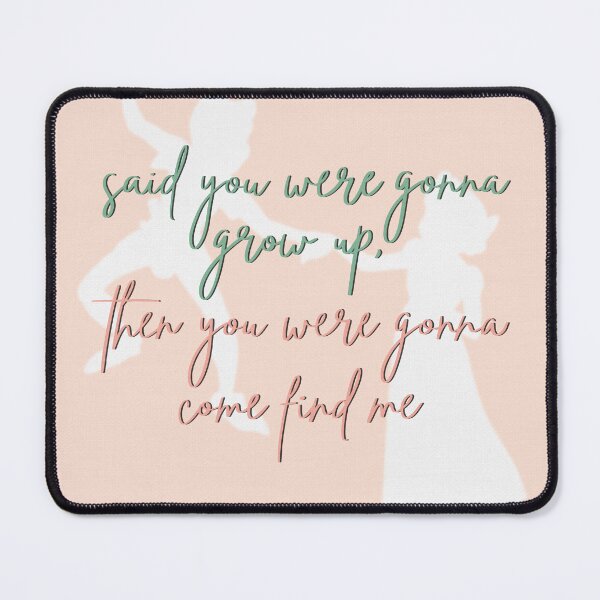 said you were gonna
grow up,
then you were gonna
come find me